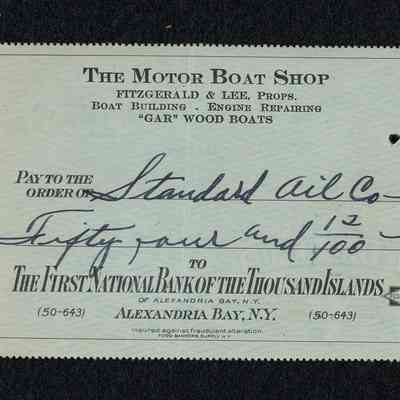 THE MOTOR BOAT SHOP
FITZGERALD & LEE, PROPS.
BOAT BUILDING - ENGINE REPAIRING
"GAR" WOOD BOATS
PAY TO THE
ORDER OF Standard Oil Co
Fifty four and 12/100
TO
THE FIRST NATIONAL BANK OF THE THOUSAND ISLANDS
OF ALEXANDRIA BAY, N.Y.
(50-643) ALEXANDRIA BAY, N.Y. (50-643)
Insured against fraudulent alteration.
TODD BANKERS SUPPLY N.Y.